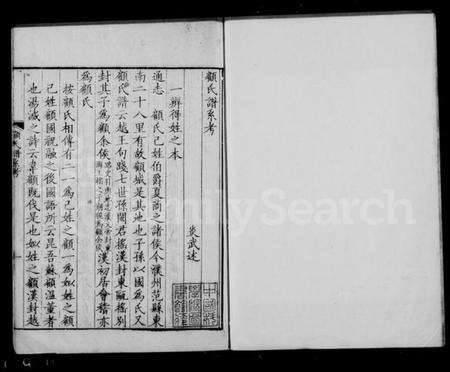 顧氏譜系考
炎武述
一辨得姓之本
通志　顧氏己姓伯爵夏商之諸侯今濮州范縣東
南二十八里有故顧城是其池也子孫以國為氏又
顧氏譜云越王句踐七世孫閩君搖漢封東甌搖別
封其子為顧余侯
漢初居會稽亦
為顧氏
按顧氏相傳有二一為己姓之顧一為姒姓之顧
己姓顧國祝融之後國語所云昆吾蘇顧溫董者
也湯滅之詩云韋顧既伐是也姒姓之顧漢封越
顧氏譜系考
FamilySearch